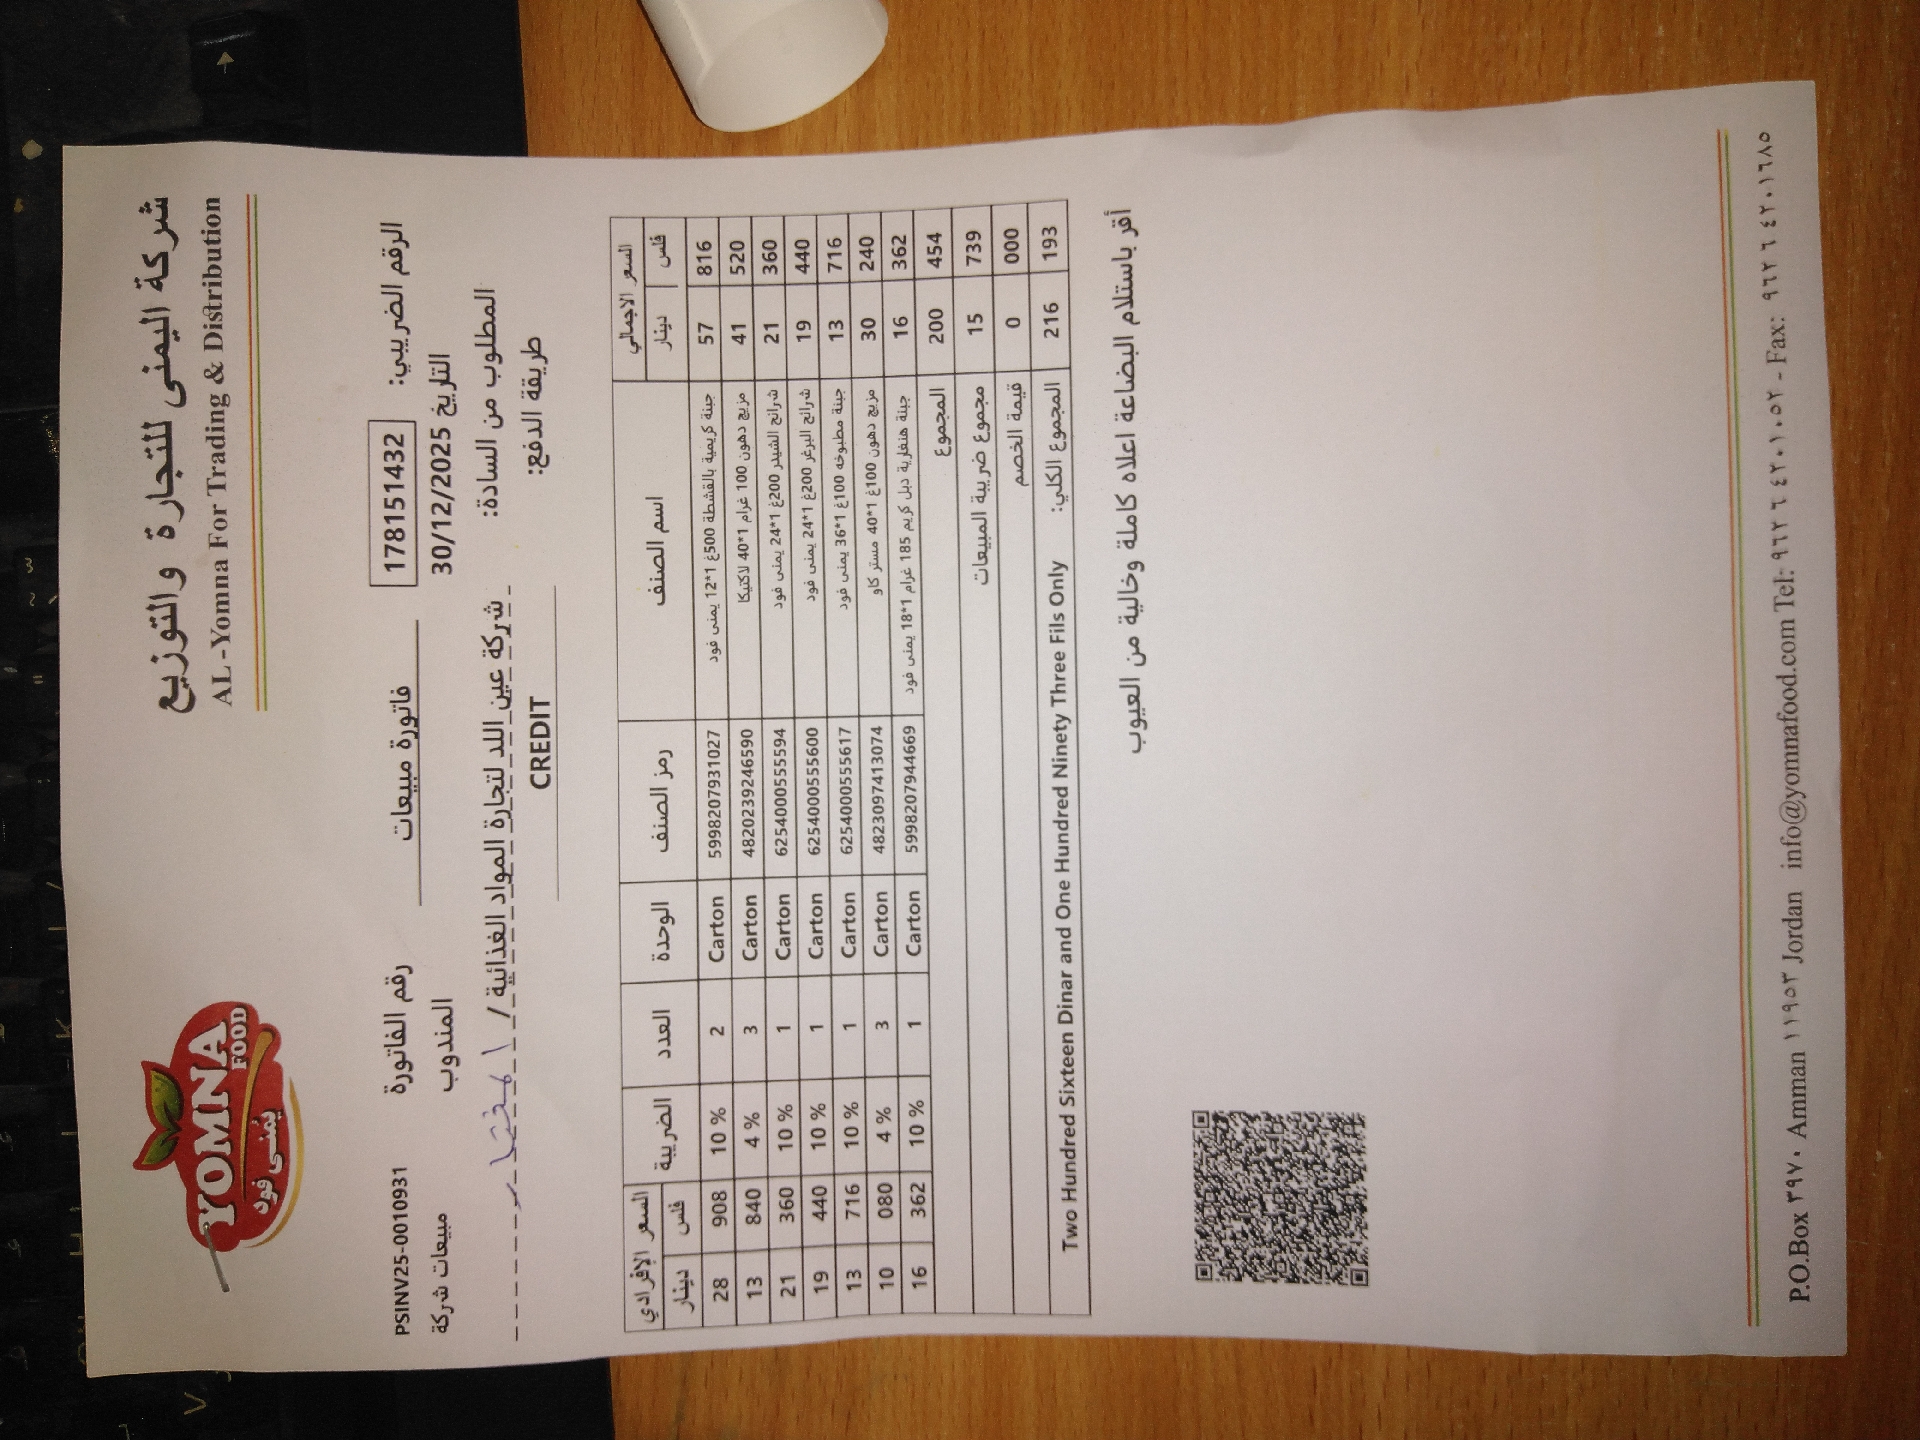 شركة اليمنى للتجارة والتوزيع
AL-Yomna For Trading & Distribution
YOMNA
FOOD
يمنى فود
الرقم الضريبي: 178151432 فاتورة مبيعات رقم الفاتورة PSINV25-0010931
التاريخ 30/12/2025 المندوب مبيعات شركة
المطلوب من السادة: شركة عين اللد لتجارة المواد الغذائية /
طريقة الدفع: CREDIT
السعر الاجمالي اسم الصنف رمز الصنف الوحدة العدد الضريبة السعر الإفرادي
فلس دينار فلس دينار
816 57 جبنة كريمية بالقشطة 500غ 1*12 يمنى فود 5998207931027 Carton 2 10 % 908 28
520 41 مزيج دهون 100 غرام 1*40 لاكتيكا 4820239246590 Carton 3 4 % 840 13
360 21 شرائح الشيدر 200غ 1*24 يمنى فود 6254000555594 Carton 1 10 % 360 21
440 19 شرائح البرغر 200غ 1*24 يمنى فود 6254000555600 Carton 1 10 % 440 19
716 13 جبنة مطبوخه 100غ 1*36 يمنى فود 6254000555617 Carton 1 10 % 716 13
240 30 مزيج دهون 100غ 1*40 مستر كاو 4823097413074 Carton 3 4 % 080 10
362 16 جبنة هنغارية دبل كريم 185 غرام 1*18 يمنى فود 5998207944669 Carton 1 10 % 362 16
454 200 المجموع
739 15 مجموع ضريبة المبيعات
000 0 قيمة الخصم
193 216 المجموع الكلي: Two Hundred Sixteen Dinar and One Hundred Ninety Three Fils Only
أقر باستلام البضاعة اعلاه كاملة وخالية من العيوب
P.O.Box ٣٩٧٠ Amman ١١٩٥٣ Jordan info@yomnafood.com Tel: ٩٦٢ ٦ ٤٢٠١٠٥٢ - Fax: ٩٦٢ ٦ ٤٢٠١٦٨٥